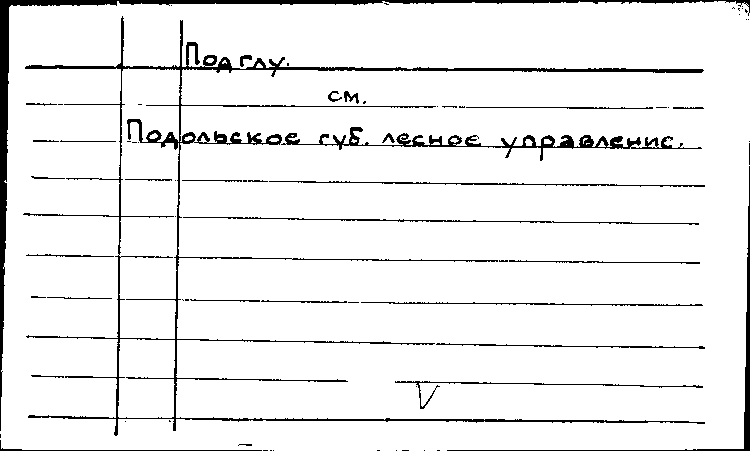 Подглу.
см.
Подольское губ. лесное управление.
V